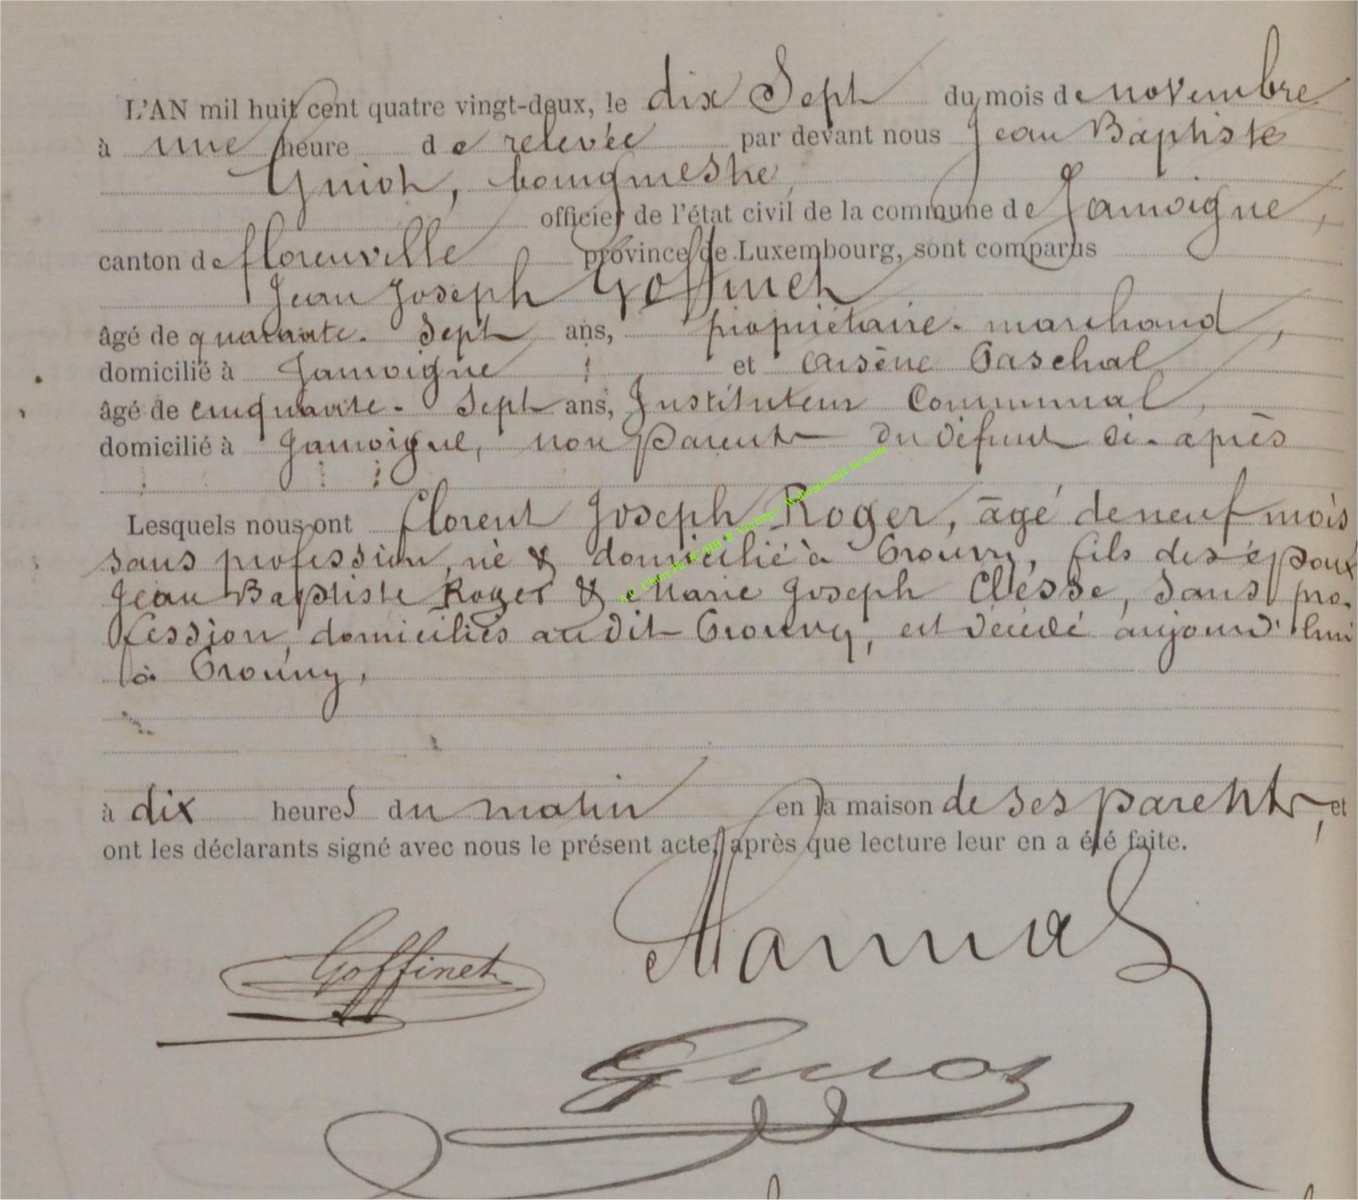 L'AN mil huit cent quatre vingt-deux, le dix Sept du mois de novembre
à une heure de relevée par devant nous Jean Baptiste
Guiot, bourgmestre,
officier de l'état civil de la commune de Jamoigne,
canton de florenville province de Luxembourg, sont comparus
Jean Joseph Goffinet
âgé de quarante-Sept ans, propriétaire-marchand,
domicilié à Jamoigne et Arsène Paschal
âgé de cinquante-Sept ans, Instituteur Communal,
domicilié à Jamoigne, non parents du défunt ci-après
Lesquels nous ont Florent Joseph Roger, âgé de neuf mois
sans profession, né & domicilié à Prouvy, fils des époux
Jean Baptiste Roger & Marie Joseph Clesse, Sans pro-
fession, domiciliés au dit Prouvy, est décédé aujourd'hui
à Prouvy,
à dix heures du matin en la maison de ses parents, et
ont les déclarants signé avec nous le présent acte, après que lecture leur en a été faite.
Goffinet